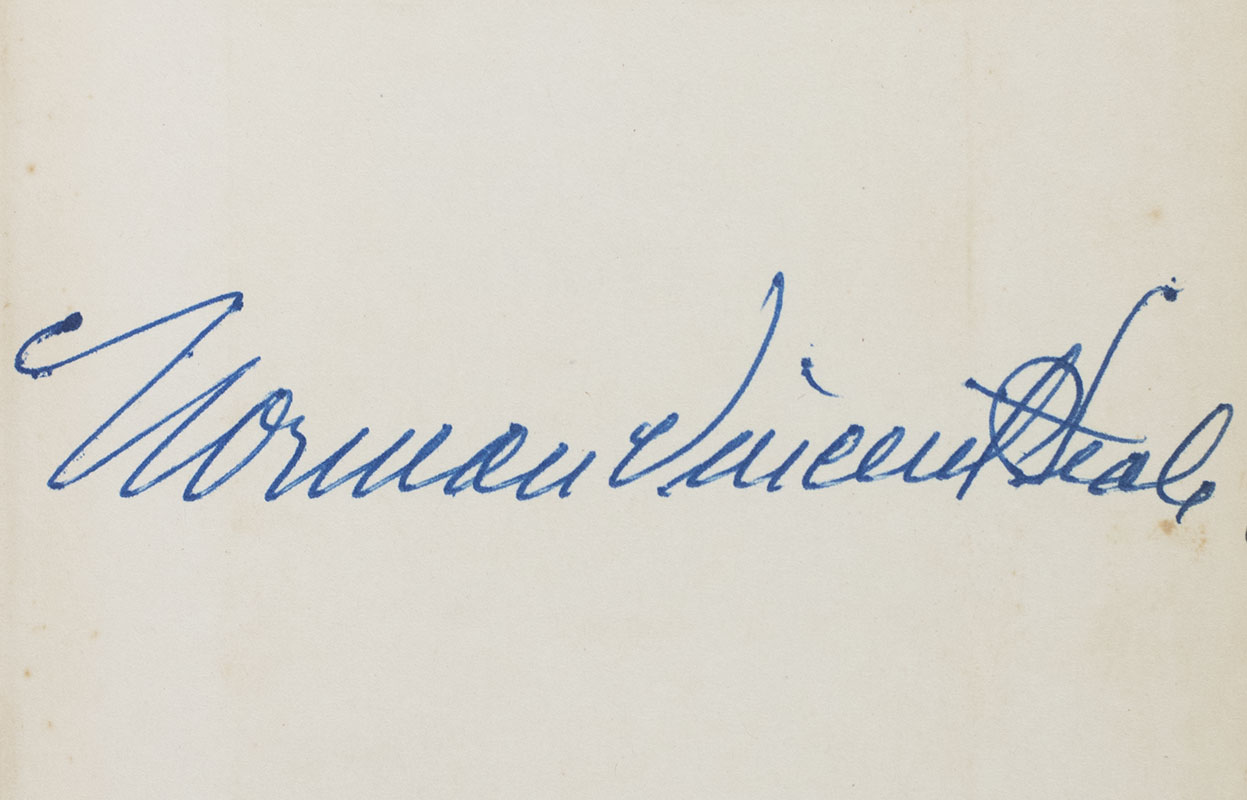 Norman Vincent Peale